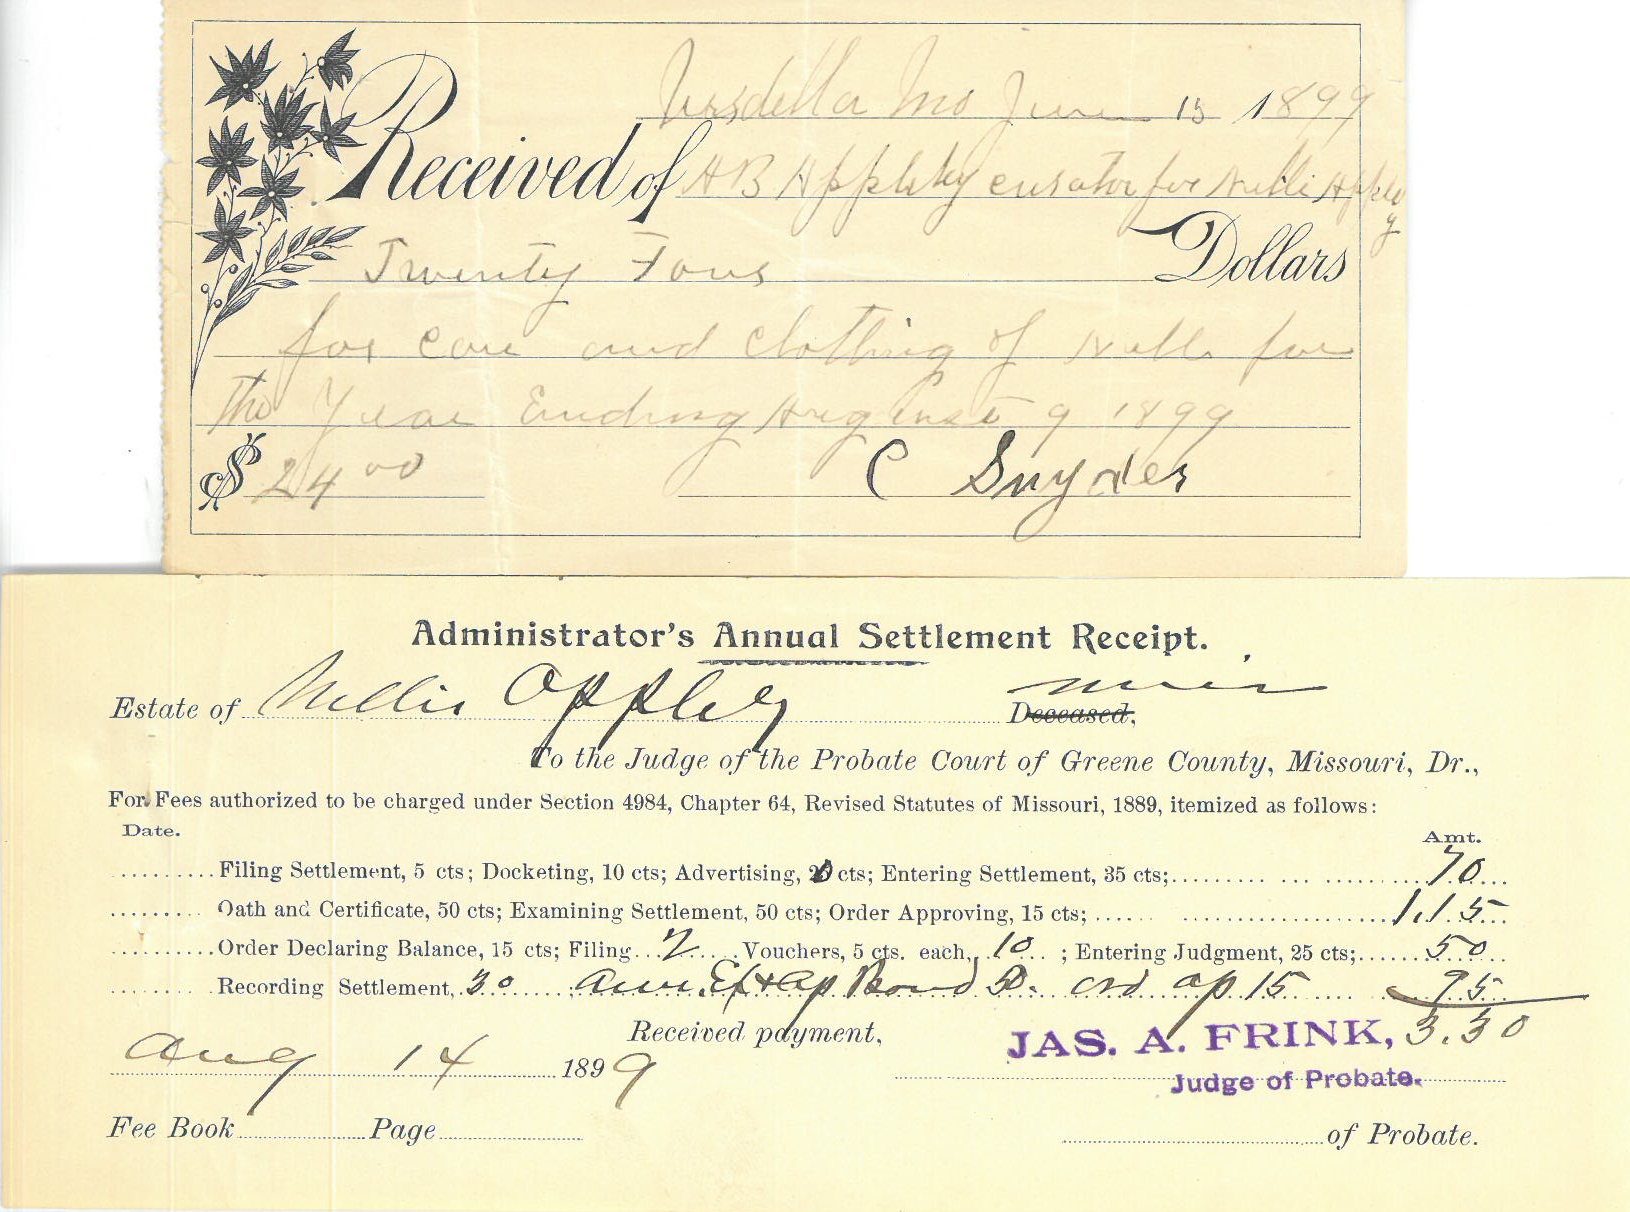 Mo June 15 1899
Received of A B Appleby curator for Nellie Appleby
Twenty Four Dollars
for care and clothing of Nelli for
the Year Ending August 9 1899
$ 24 00 C Snyder
Administrator's Annual Settlement Receipt.
Estate of Nellie Appleby minor
Deceased,
To the Judge of the Probate Court of Greene County, Missouri, Dr.,
For Fees authorized to be charged under Section 4984, Chapter 64, Revised Statutes of Missouri, 1889, itemized as follows:
Date. Amt.
Filing Settlement, 5 cts; Docketing, 10 cts; Advertising, 20 cts; Entering Settlement, 35 cts; 70
Oath and Certificate, 50 cts; Examining Settlement, 50 cts; Order Approving, 15 cts; 1.15
Order Declaring Balance, 15 cts; Filing 2 Vouchers, 5 cts. each, 10 ; Entering Judgment, 25 cts; 50
Recording Settlement, 30 Bond 50 ord ap 15 95
Received payment, JAS. A. FRINK, 3.30
Aug 14 1899
Judge of Probate.
Fee Book Page of Probate.